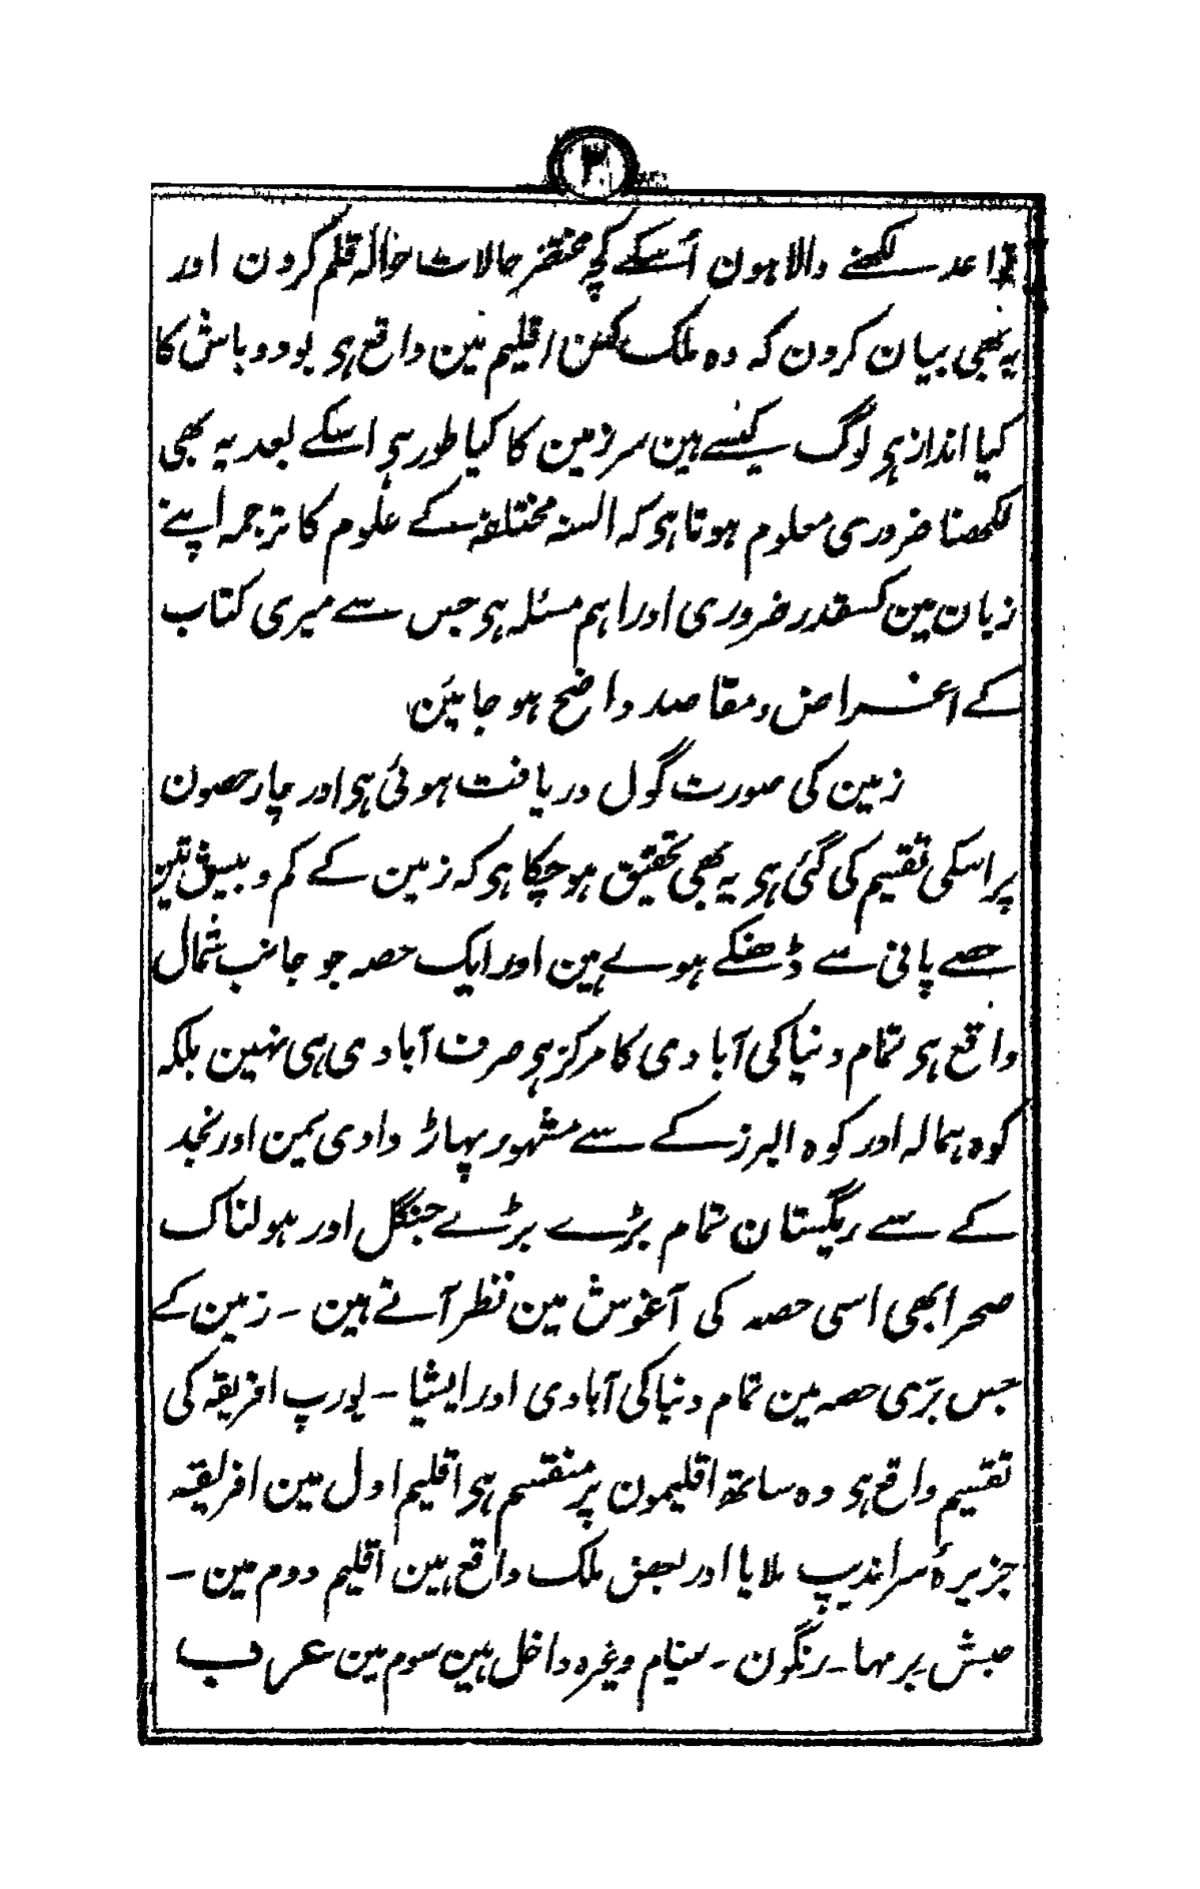 ۳
قواعد لکھنے والا ہون اُسکے کچھ مختصر حالات حوالہ قلم کرون اور
یہ بھی بیان کرون کہ وہ ملک کس اقلیم مین واقع ہی بود و باش کا
کیا انداز ہی لوگ کیسے ہین سرزمین کا کیا طور ہی اسکے بعد یہ بھی
لکھنا ضروری معلوم ہوتا ہی کہ السنہ مختلفہ کے علوم کا ترجمہ اپنے
زبان مین کسقدر ضروری اور اہم مسئلہ ہی جس سے میری کتاب
کے اغراض و مقاصد واضح ہو جایئن
زمین کی صورت گول دریافت ہوئی ہی اور چار حصون
پر اسکی تقسیم کی گئی ہی یہ بھی تحقیق ہو چکا ہی کہ زمین کے کم و بیش تین
حصے پانی سے ڈھنکے ہوے ہین اور ایک حصہ جو جانب شمال
واقع ہی تمام دنیا کی آبادی کا مرکز ہی صرف آبادی ہی نہین بلکہ
کوہ ہمالہ اور کوہ البرز کے سے مشہور پہاڑ وادی یمن اور نجد
کے سے ریگستان تمام بڑے بڑے جنگل اور ہولناک
صحرا بھی اسی حصہ کی آغوش مین نظر آتے ہین ۔ زمین کے
جس بَرّی حصہ مین تمام دنیا کی آبادی اور ایشیا ۔ یورپ افریقہ کی
تقسیم واقع ہی وہ ساتھ اقلیمون پر منقسم ہی اقلیم اول مین افریقہ
جزیرۂ سراندیپ ملایا اور بعض ملک واقع ہین اقلیم دوم مین ۔
حبش برمہا ۔ رنگون ۔ سیام وغیرہ داخل ہین سوم مین عرب